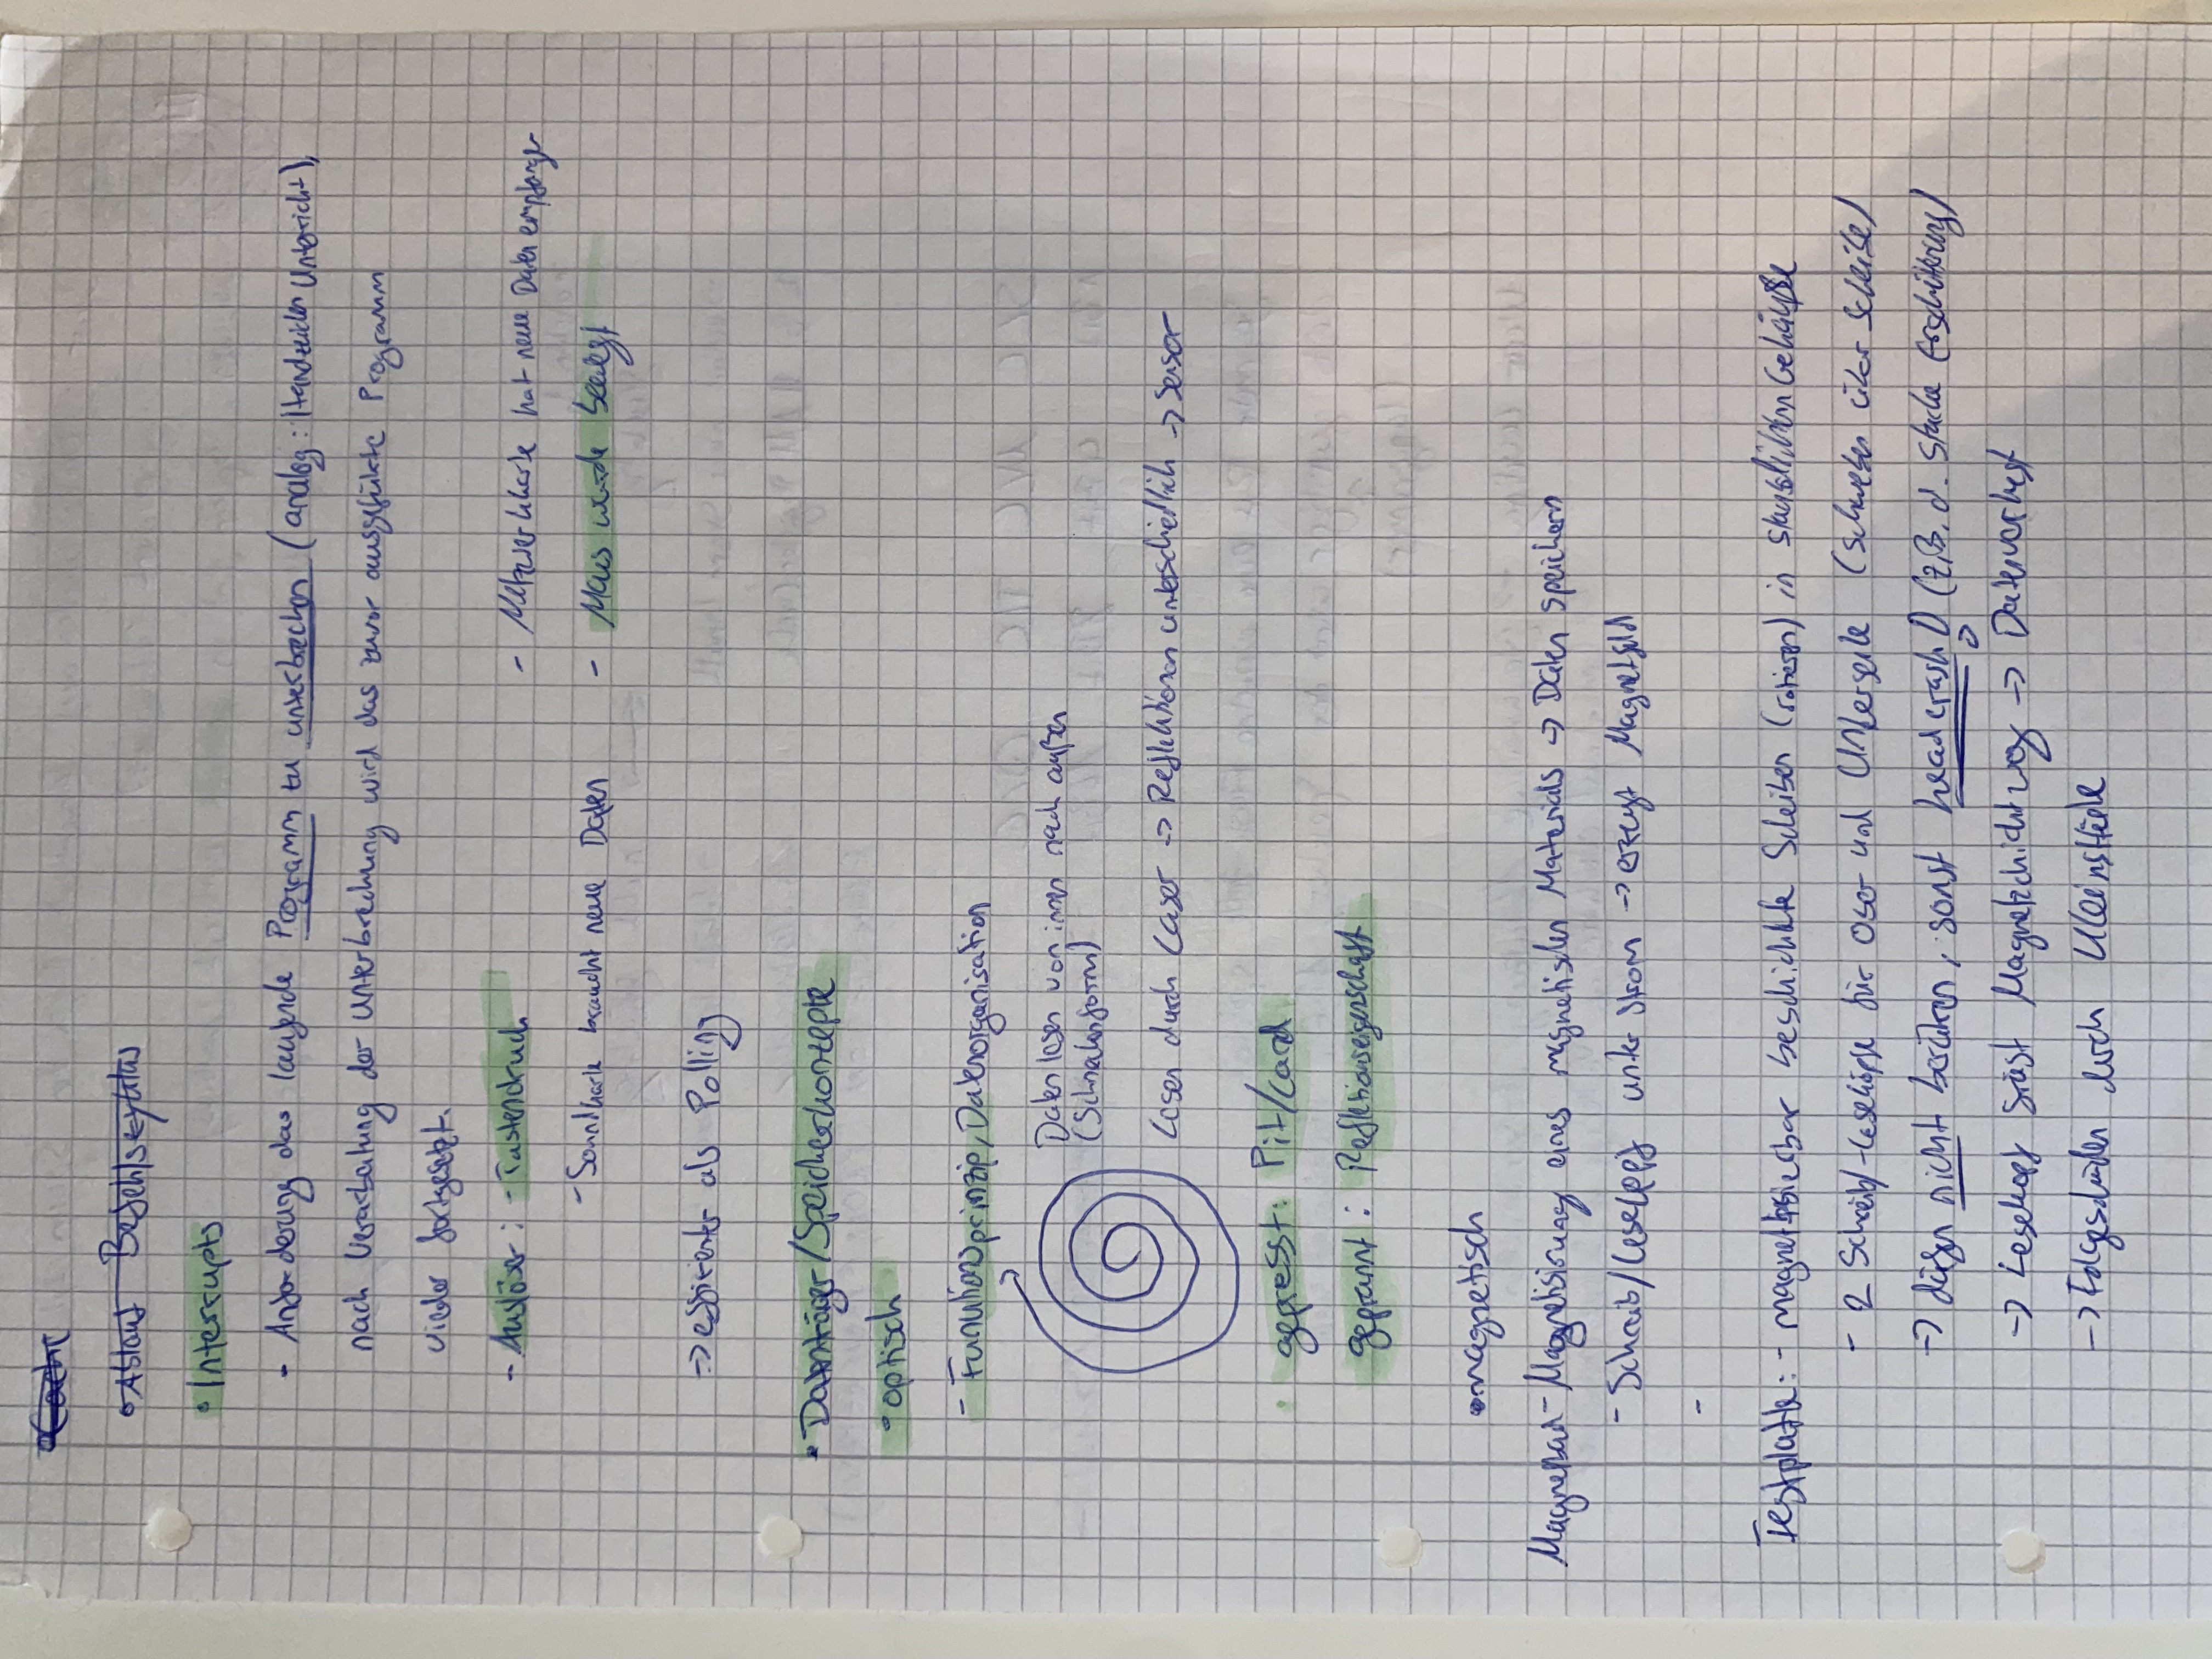 • Cache
• Ablauf Befehlszyklus
• Interrupts
- Anforderung das laufende Programm zu unterbrechen (analog: Handzeichen Unterricht),
nach Verarbeitung der Unterbrechung wird das zuvor ausgeführte Programm
wieder fortgesetzt.
- Auslöser: - Tastendruck - Netzwerkkarte hat neue Daten empfangen
- Soundkarte braucht neue Daten - Maus wurde bewegt
=> effizienter als Polling
• Datenträger/Speicherkonzepte
• optisch
- Funktionsprinzip, Datenorganisation
Daten lesen von innen nach außen
(Schneckenform)
Lesen durch Laser -> Reflektionen unterschiedlich -> Sensor
• gepresst: Pit/Land
gebrannt: Reflektionseigenschaft
• magnetisch
- Magnetisierung eines magnetischen Materials -> Daten speichern
- Schreib/Lesekopf unter Strom -> erzeugt Magnetfeld
-
Festplatte: - magnetisierbar beschichtete Scheiben (rotieren) in staubdichten Gehäuse
- 2 Schreib/-Leseköpfe für Ober und Unterseite (schweben über Scheibe)
-> dürfen nicht berühren, sonst headcrash (z.B. d. starke Erschütterung)
-> Lesekopf fräst Magnetschicht weg -> Datenverlust
-> Folgeschäden durch Kleinstteile